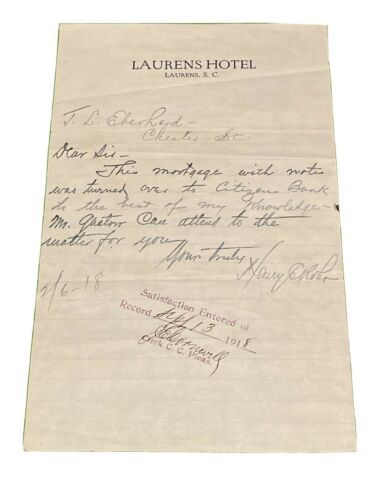 LAURENS HOTEL
LAURENS, S. C.
T. L. Eberhard -
Chester S.C.
Dear Sir -
This mortgage with notes
was turned over to Citizens Bank
to the best of my Knowledge -
Mr. Guston Can attend to the
matter for you
Yours truly
Harry
2/6-18
Satisfaction Entered of
Record Sept 13 1918
Clerk C. C. Pleas.